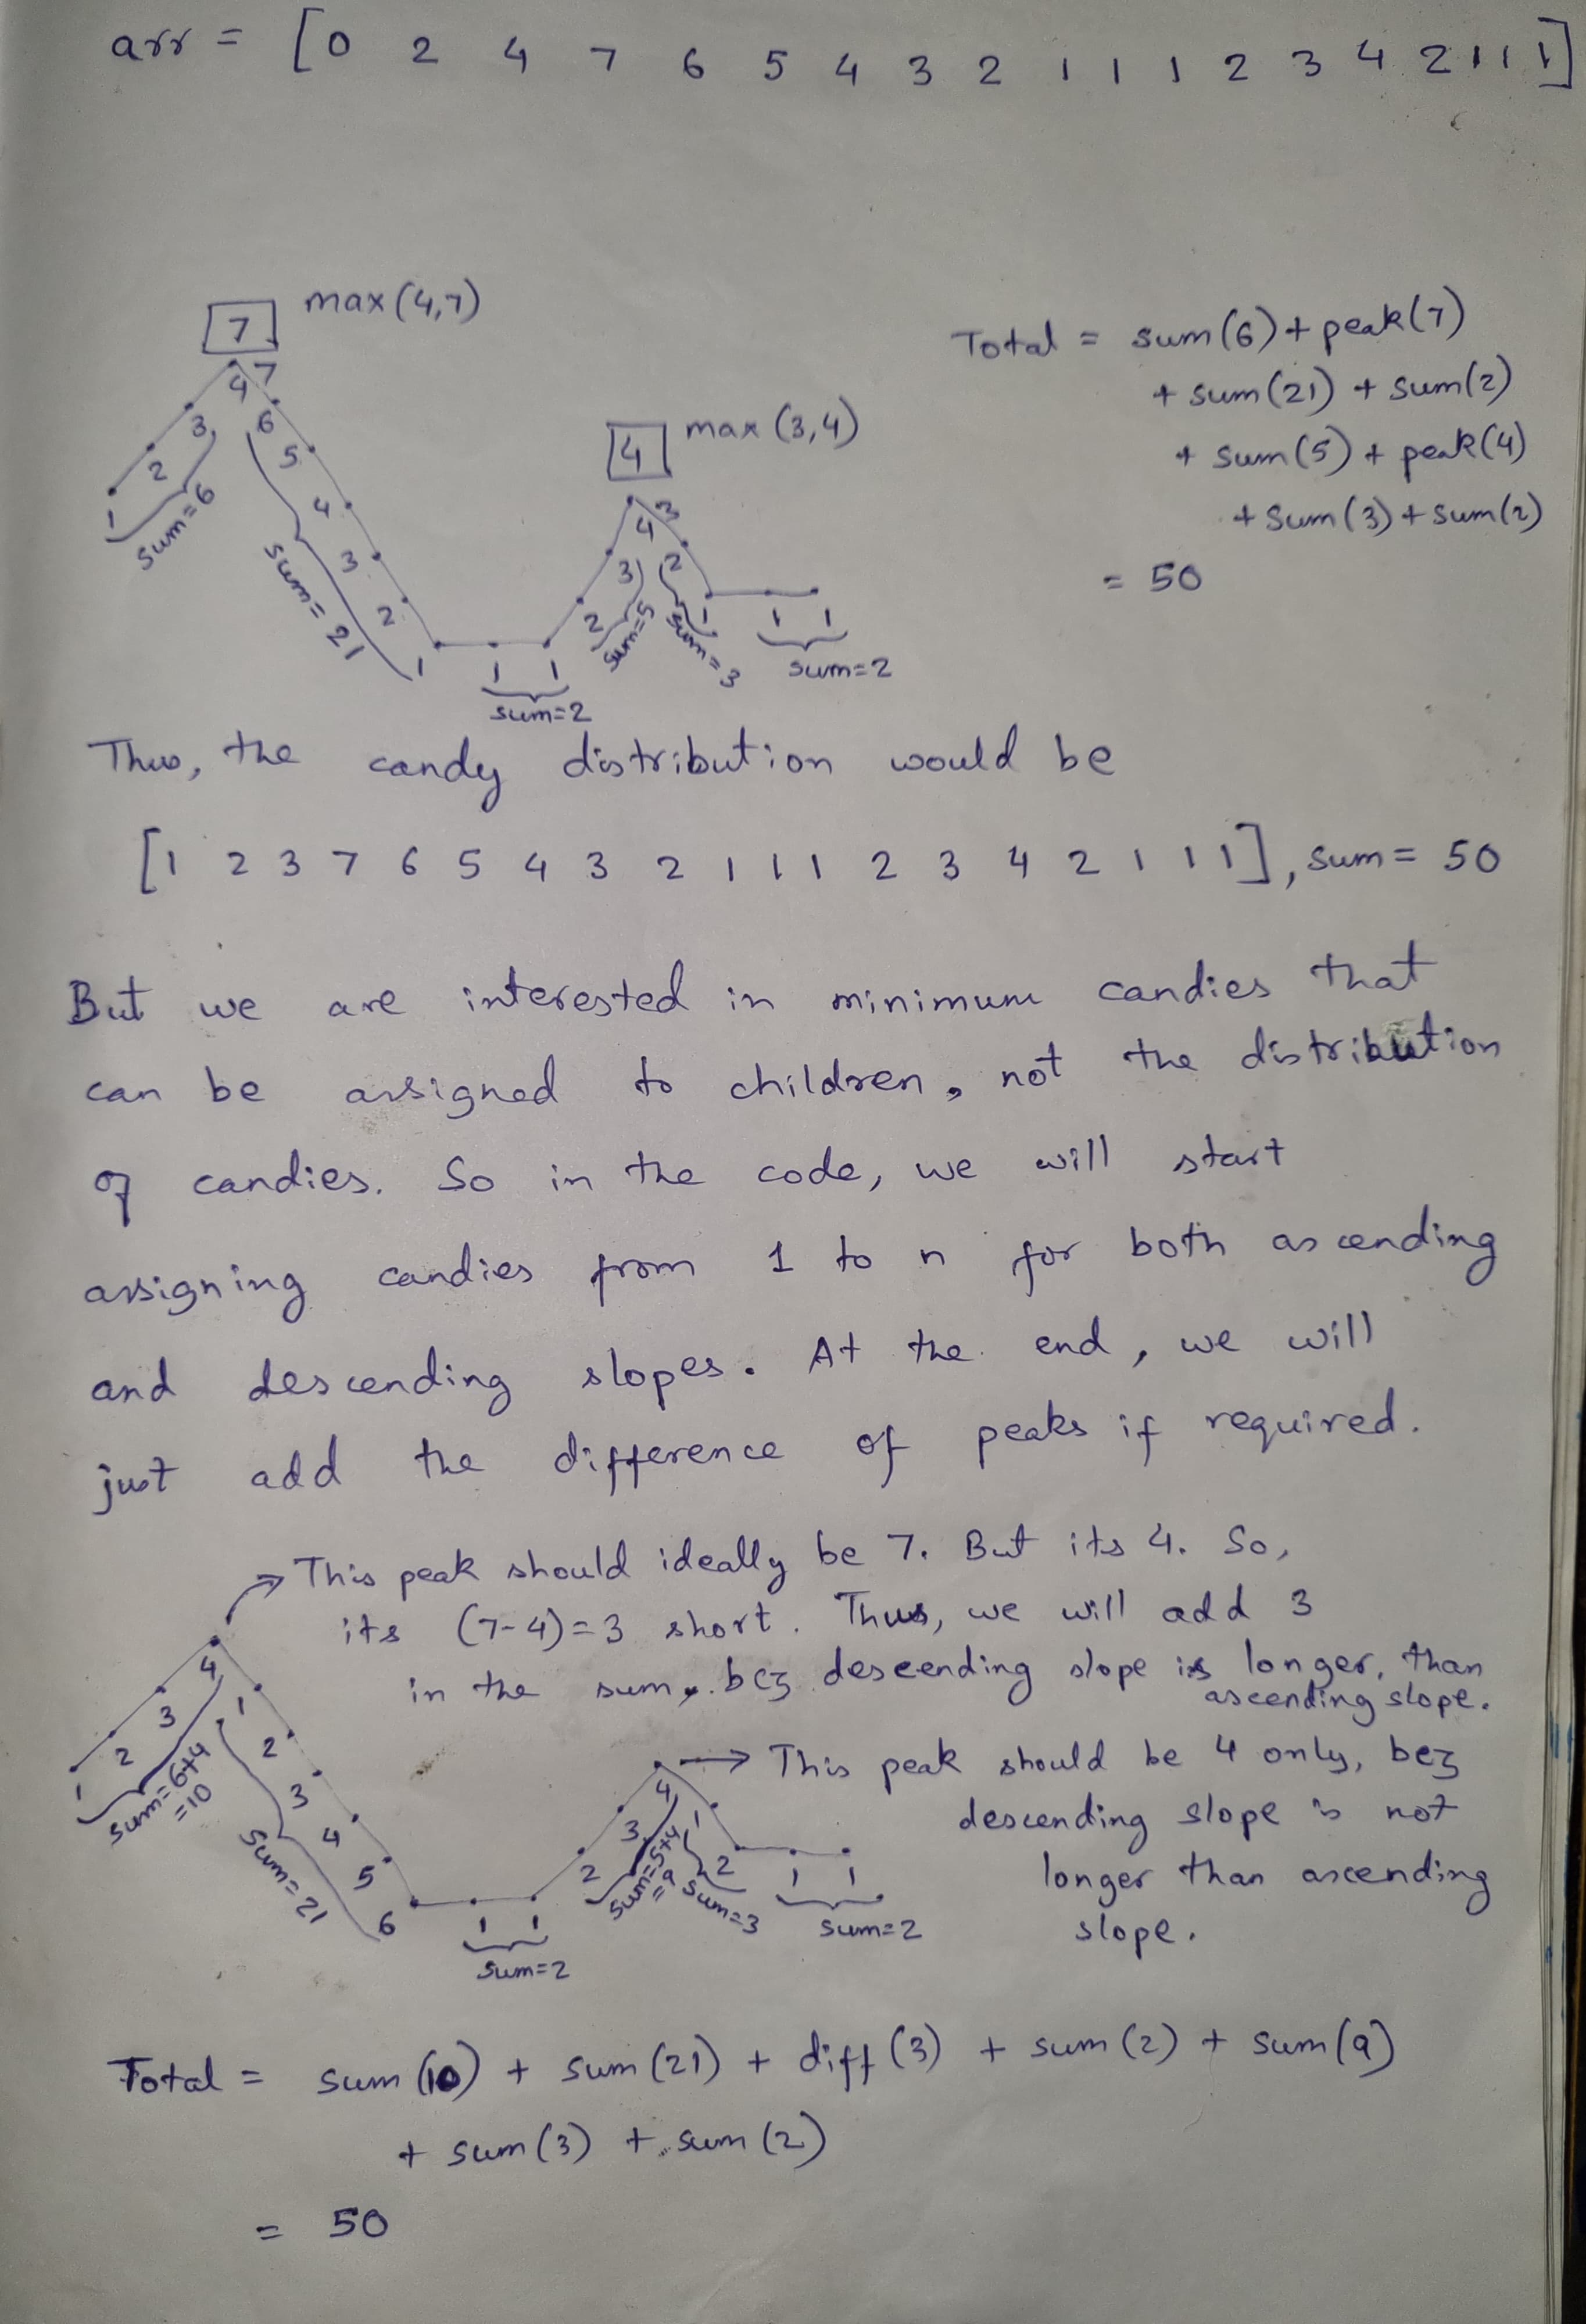 arr = [0 2 4 7 6 5 4 3 2 1 1 1 2 3 4 2 1 1 1]
7 max(4,7)
4 7
3 6
2 5
1 4
sum=6 3
2
1
sum=21
1 1
sum=2
4 max(3,4)
4 3
3 2
2 1
sum=5 sum=3
1 1
sum=2
Total = sum(6) + peak(7)
+ sum(21) + sum(2)
+ sum(5) + peak(4)
+ sum(3) + sum(2)
= 50
Thus, the candy distribution would be
[1 2 3 7 6 5 4 3 2 1 1 1 2 3 4 2 1 1 1], sum = 50
But we are interested in minimum candies that
can be assigned to children, not the distribution
of candies. So in the code, we will start
assigning candies from 1 to n for both ascending
and descending slopes. At the end, we will
just add the difference of peaks if required.
→ This peak should ideally be 7. But its 4. So,
its (7-4)=3 short. Thus, we will add 3
in the sum, bcz descending slope is longer than
ascending slope.
4
3 1
2 2
1 3
sum=6+4 4
=10 5
6
sum=21
1 1
sum=2
→ This peak should be 4 only, bcz
descending slope is not
longer than ascending
slope.
4
3 1
2 2
sum=5+4
=9
sum=3
1 1
sum=2
Total = sum(10) + sum(21) + diff(3) + sum(2) + sum(9)
+ sum(3) + sum(2)
= 50